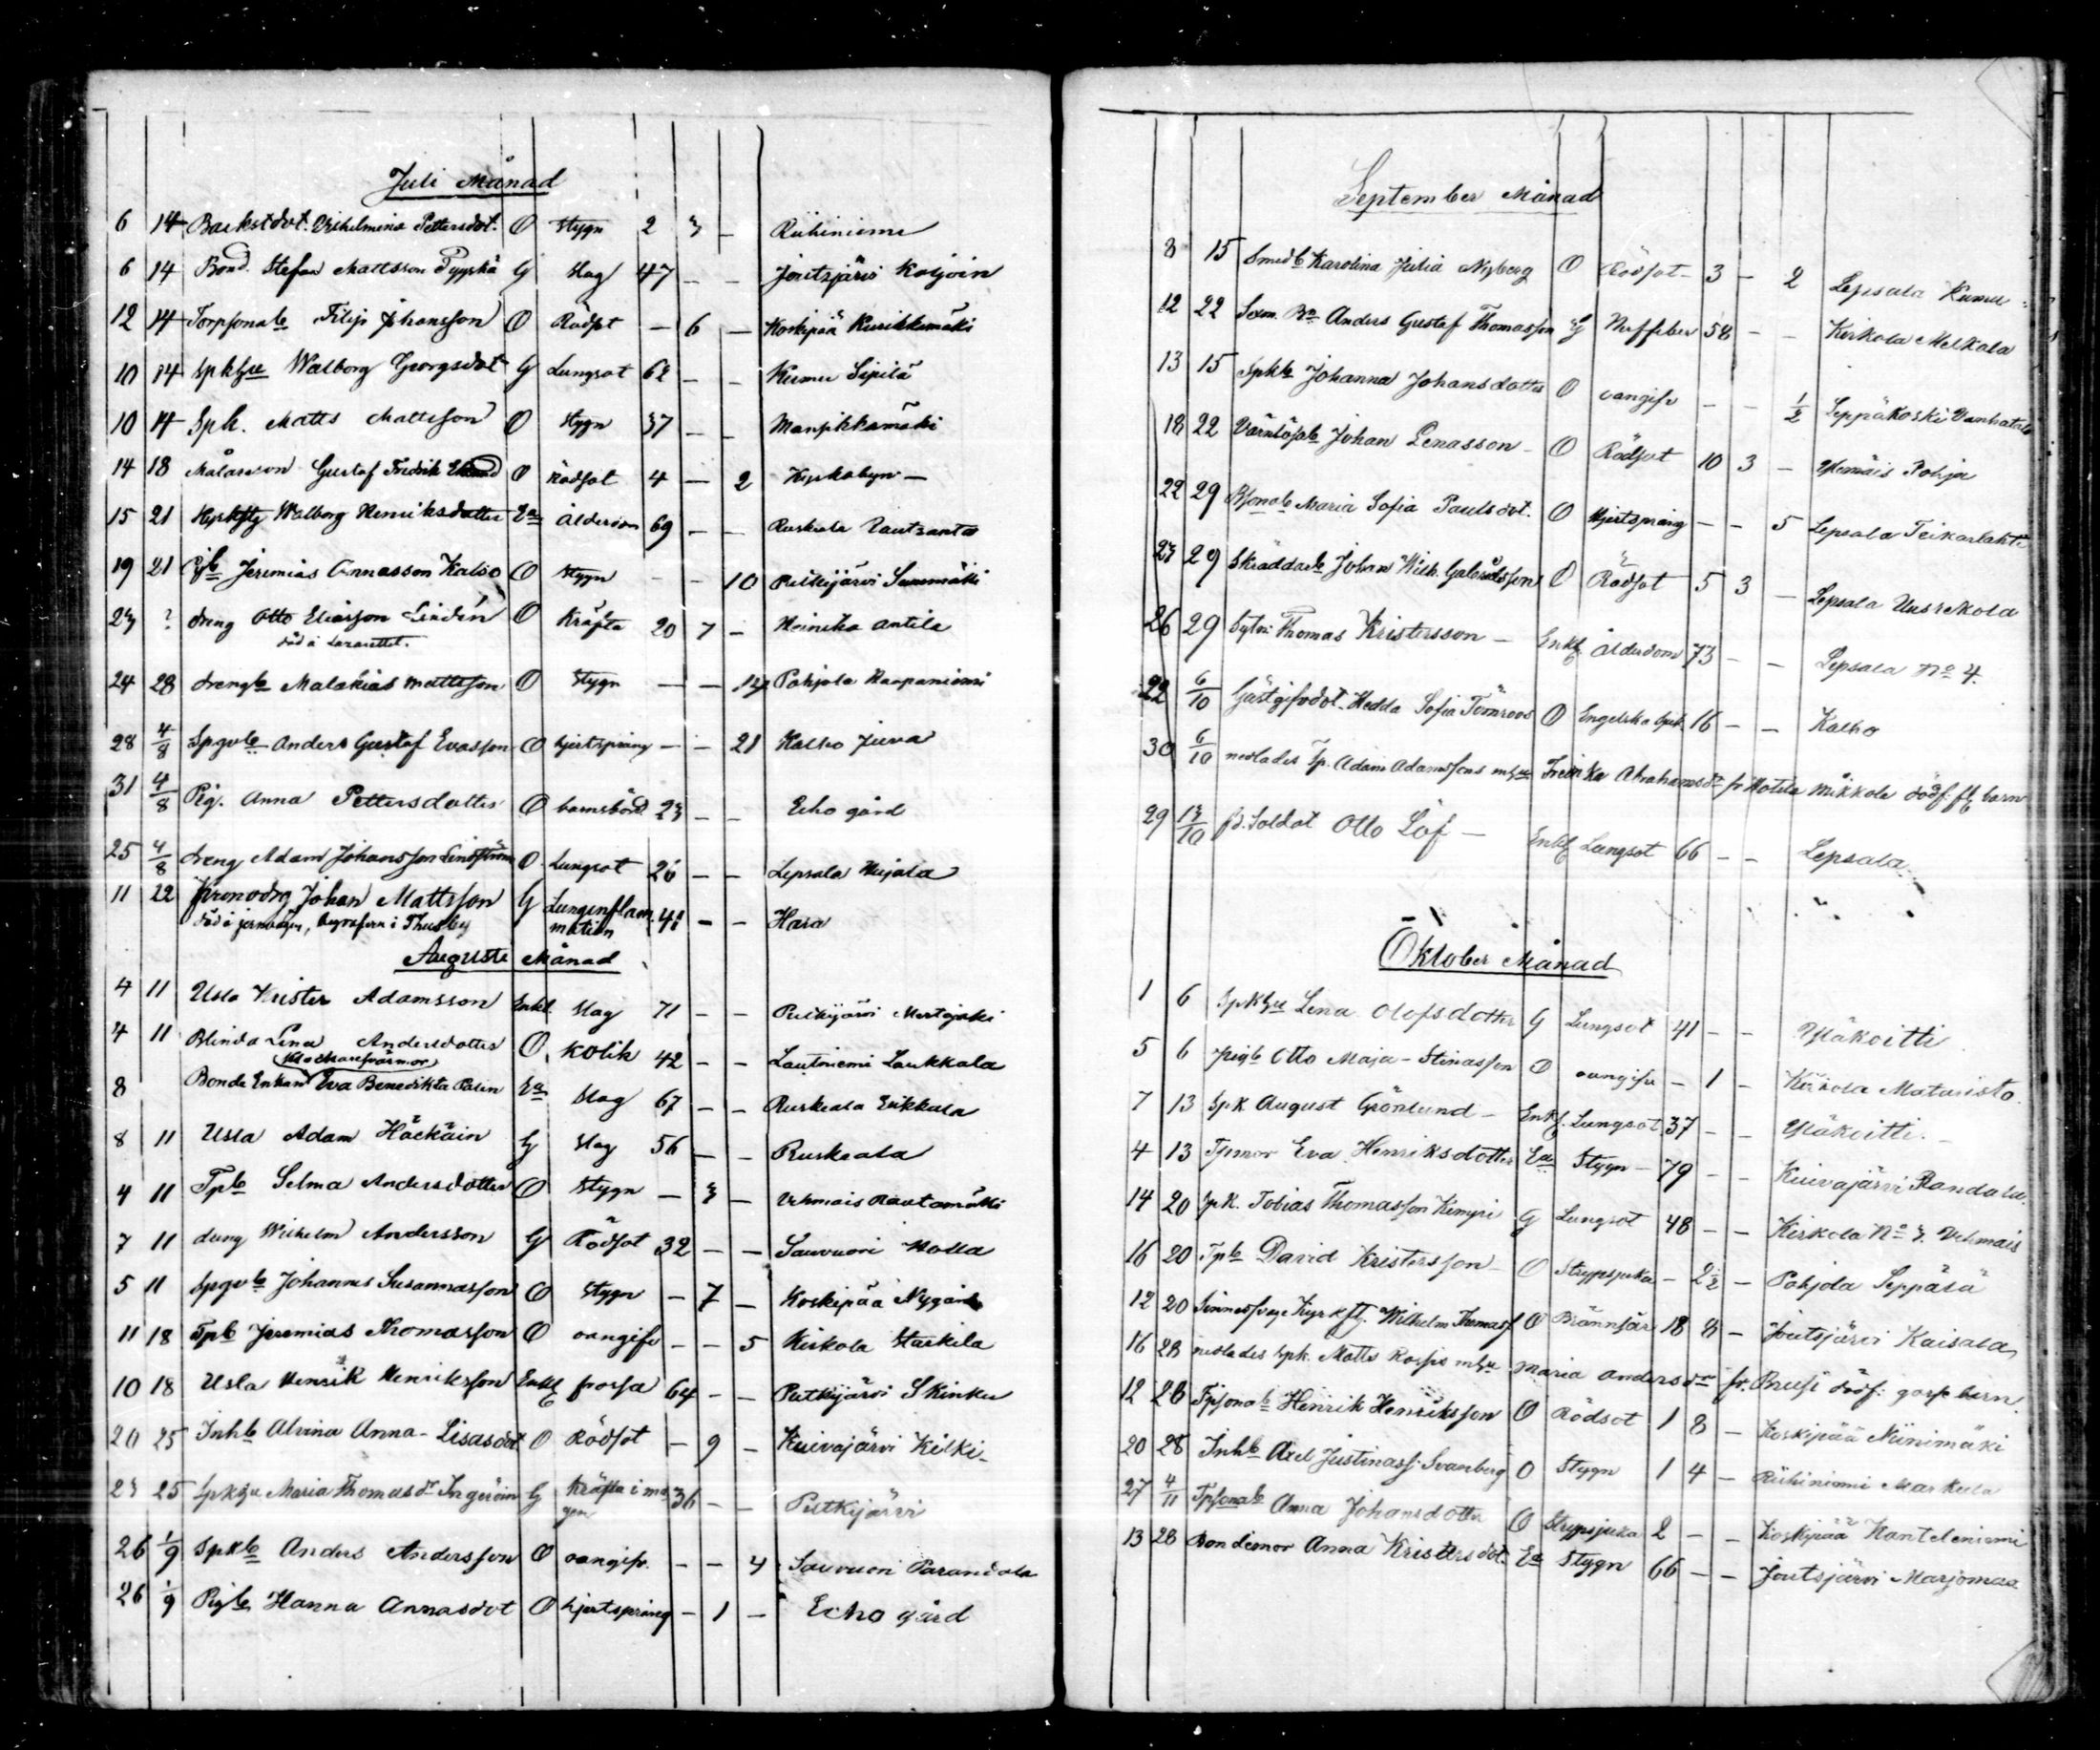 Juli Månad
6 14 Backstdot. Wilhelmina Pettersdot. O Stygn 2 3 — Riihiniemi
6 14 Bond. Stefan Mattsson Pyyskä G Slag 47 — — Joutsjäris Koljoin
12 14 Torpsonab Filip Johansson O Rödsot — 6 — Koskipää Kurikkamäki
10 14 Spkhu Walborg Georgsdot G Lungsot 62 — — Kumu Sipilä
10 14 Spk. Matts Mattsson O Stygn 37 — — Manskkamäki
14 18 Målareson Gustaf Fredrik O Rödsot 4 — 2 Kyrkobyn —
15 21 Kyrkftg Walborg Henriksdotter Ea Ålderdom 69 — — Ruskeala Rautsanta
19 21 Pigb Jeremias Annasson Kalso O Stygn — — 10 Putkijärvi Summäki
23 ? dreng Otto Eliasson Lindén O Kräfta 20 7 — Heiniko Antila
död å Lazarettet.
24 28 drengb Malakias Mattsson O Stygn — — 14 Pohjola Haapaniemi
28 4/8 Spgvb Anders Gustaf Evasson O hjertspräng — — 21 Kalho Juva
31 4/8 Pig. Anna Pettersdotter O barnsbörd 23 — — Echo gård
25 4/8 dreng Adam Johansson Lindström O Lungsot 26 — — Lepsala Mujala
11 22 Kronodrg Johan Mattsson G Lungenflam mation 41 — — Hara
död å jernvägen, begrafven i Thusby
Auguste Månad
4 11 Usla Krister Adamsson Enkl Slag 71 — — Putkijärvi Mertajoki
4 11 Blinda Lina Andersdotter O Kolik 42 — — Lautniemi Laukkala
8 Bonde Enkan Eva Benedikta Palin Ea Slag 67 — — Ruskeala Erikkala
8 11 Usla Adam Häckäin G Slag 56 — — Ruskeala
4 11 Tpb Selma Andersdotter O Stygn — 3 — Vehmais Rautamäki
7 11 dreng Wilhelm Andersson G Rödsot 32 — — Sauvuori Nolla
5 11 Spgvb Johannes Susannasson O Stygn — 7 — Koskipää Nygård
11 18 Tpb Jeremias Thomasson O oangifv — — 5 Kirkola Starkila
10 18 Usla Henrik Henriksson Enkl frossa 64 — — Putkijärvi Skinku
20 25 Inhb Alvina Anna-Lisasdot O Rödsot — 9 — Kuivajärvi Kilki
23 25 Spkhu Maria Thomasdr Ingeröin G Kräfta i ma gen 36 — — Putkijärvi
26 1/9 Spkb Anders Andersson O oangifv. — — 4 Sauvuori Parandola
26 1/9 Pigb Hanna Annasdot O hjertspräng — 1 — Echo gård
September Månad
8 15 Smedb Karolina Julia Nyberg O Rödsot 3 — 2 Lepsala Kumu
12 22 Sexm. Bn Anders Gustaf Thomasson G Nerffeber 58 — — Kirkola Melkola
13 15 Spkb Johanna Johansdotter O oangifv — — 1/2 Seppäkoski Vanhatalo
18 22 Värnlösb Johan Lenasson — O Rödsot 10 3 — Vehmais Pohja
22 29 Bsonab Maria Sofia Paulsdot. O Hjertspräng — — 5 Lepsala Teikarlahti
23 29 Skräddarb Johan Wilh. Gabrielsson O Rödsot 5 3 — Lepsala Uusrekola
26 29 Sytni Thomas Kristersson — Enkl Ålderdom 73 — — Lepsala No 4.
22 6/10 Gästgifvdot. Hedda Sofia Törnroos O Engelska sjuk. 16 — — Kalho
30 6/10 nedlades Sp. Adam Adamssons mhu Fredrika Abrahamsdr fr. Hotila Mikkola dödf. fl. barn
29 13/10 fd. Soldat Otto Löf — Enkl Lungsot 66 — — Lepsala
Oktober Månad
1 6 Spkhu Lena Olofsdotter G Lungsot 41 — — Yläkoitti
5 6 Pigb Otto Maja-Stinasson O oangifv — 1 — Kirkola Maturisto
7 13 Spk August Grönlund — Enkl. Lungsot 37 — — Yläkoitti.
4 13 Tpmor Eva Henriksdotter Ea Stygn — 79 — — Kuivajärvi Randala
14 20 Spk. Tobias Thomasson Kimpi G Lungsot 48 — — Kirkola No 3. Vehmais
16 20 Tpb David Kristersson — O Strypsjuka — 2 1/2 — Pohjola Seppälä
12 20 Sinnessvage Kyrkftg. Wilhelm Thomass O Brännsår 18 8 — Joutsjärvi Kaisala
16 28 nedlades Spk. Matts Rosfis mhu Maria Andersdr fr. Prusi dödf. goss barn.
12 28 Tpsonab Henrik Henriksson O Rödsot 1 8 — Koskipää Niinimäki
20 28 Inhb Axel Justinass. Svanberg O Stygn 1 4 — Riihiniemi Markula
27 4/11 Tpsonab Anna Johansdotter O Strypsjuka 2 — — Koskipää Kanteleniemi
13 28 Bondemor Anna Kristersdot. Ea Stygn 66 — — Joutsjärvi Marjomaa